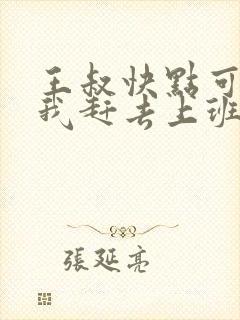 王叔快點可
我赶去上班
張延亮